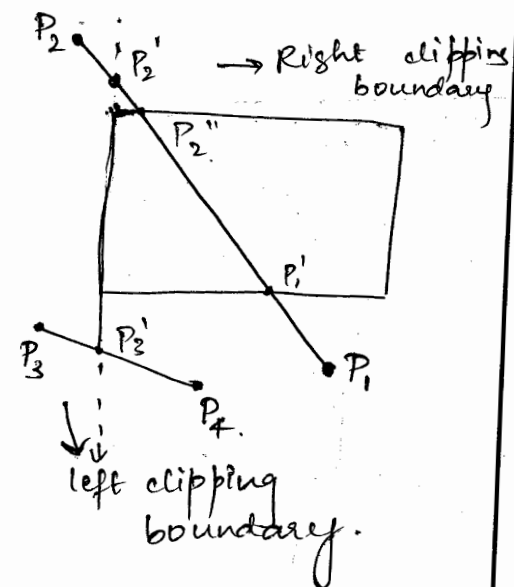 P2
P2'
→ Right clipping
boundary
P2''
P1'
P3
P3'
P1
P4.
left clipping
boundary.